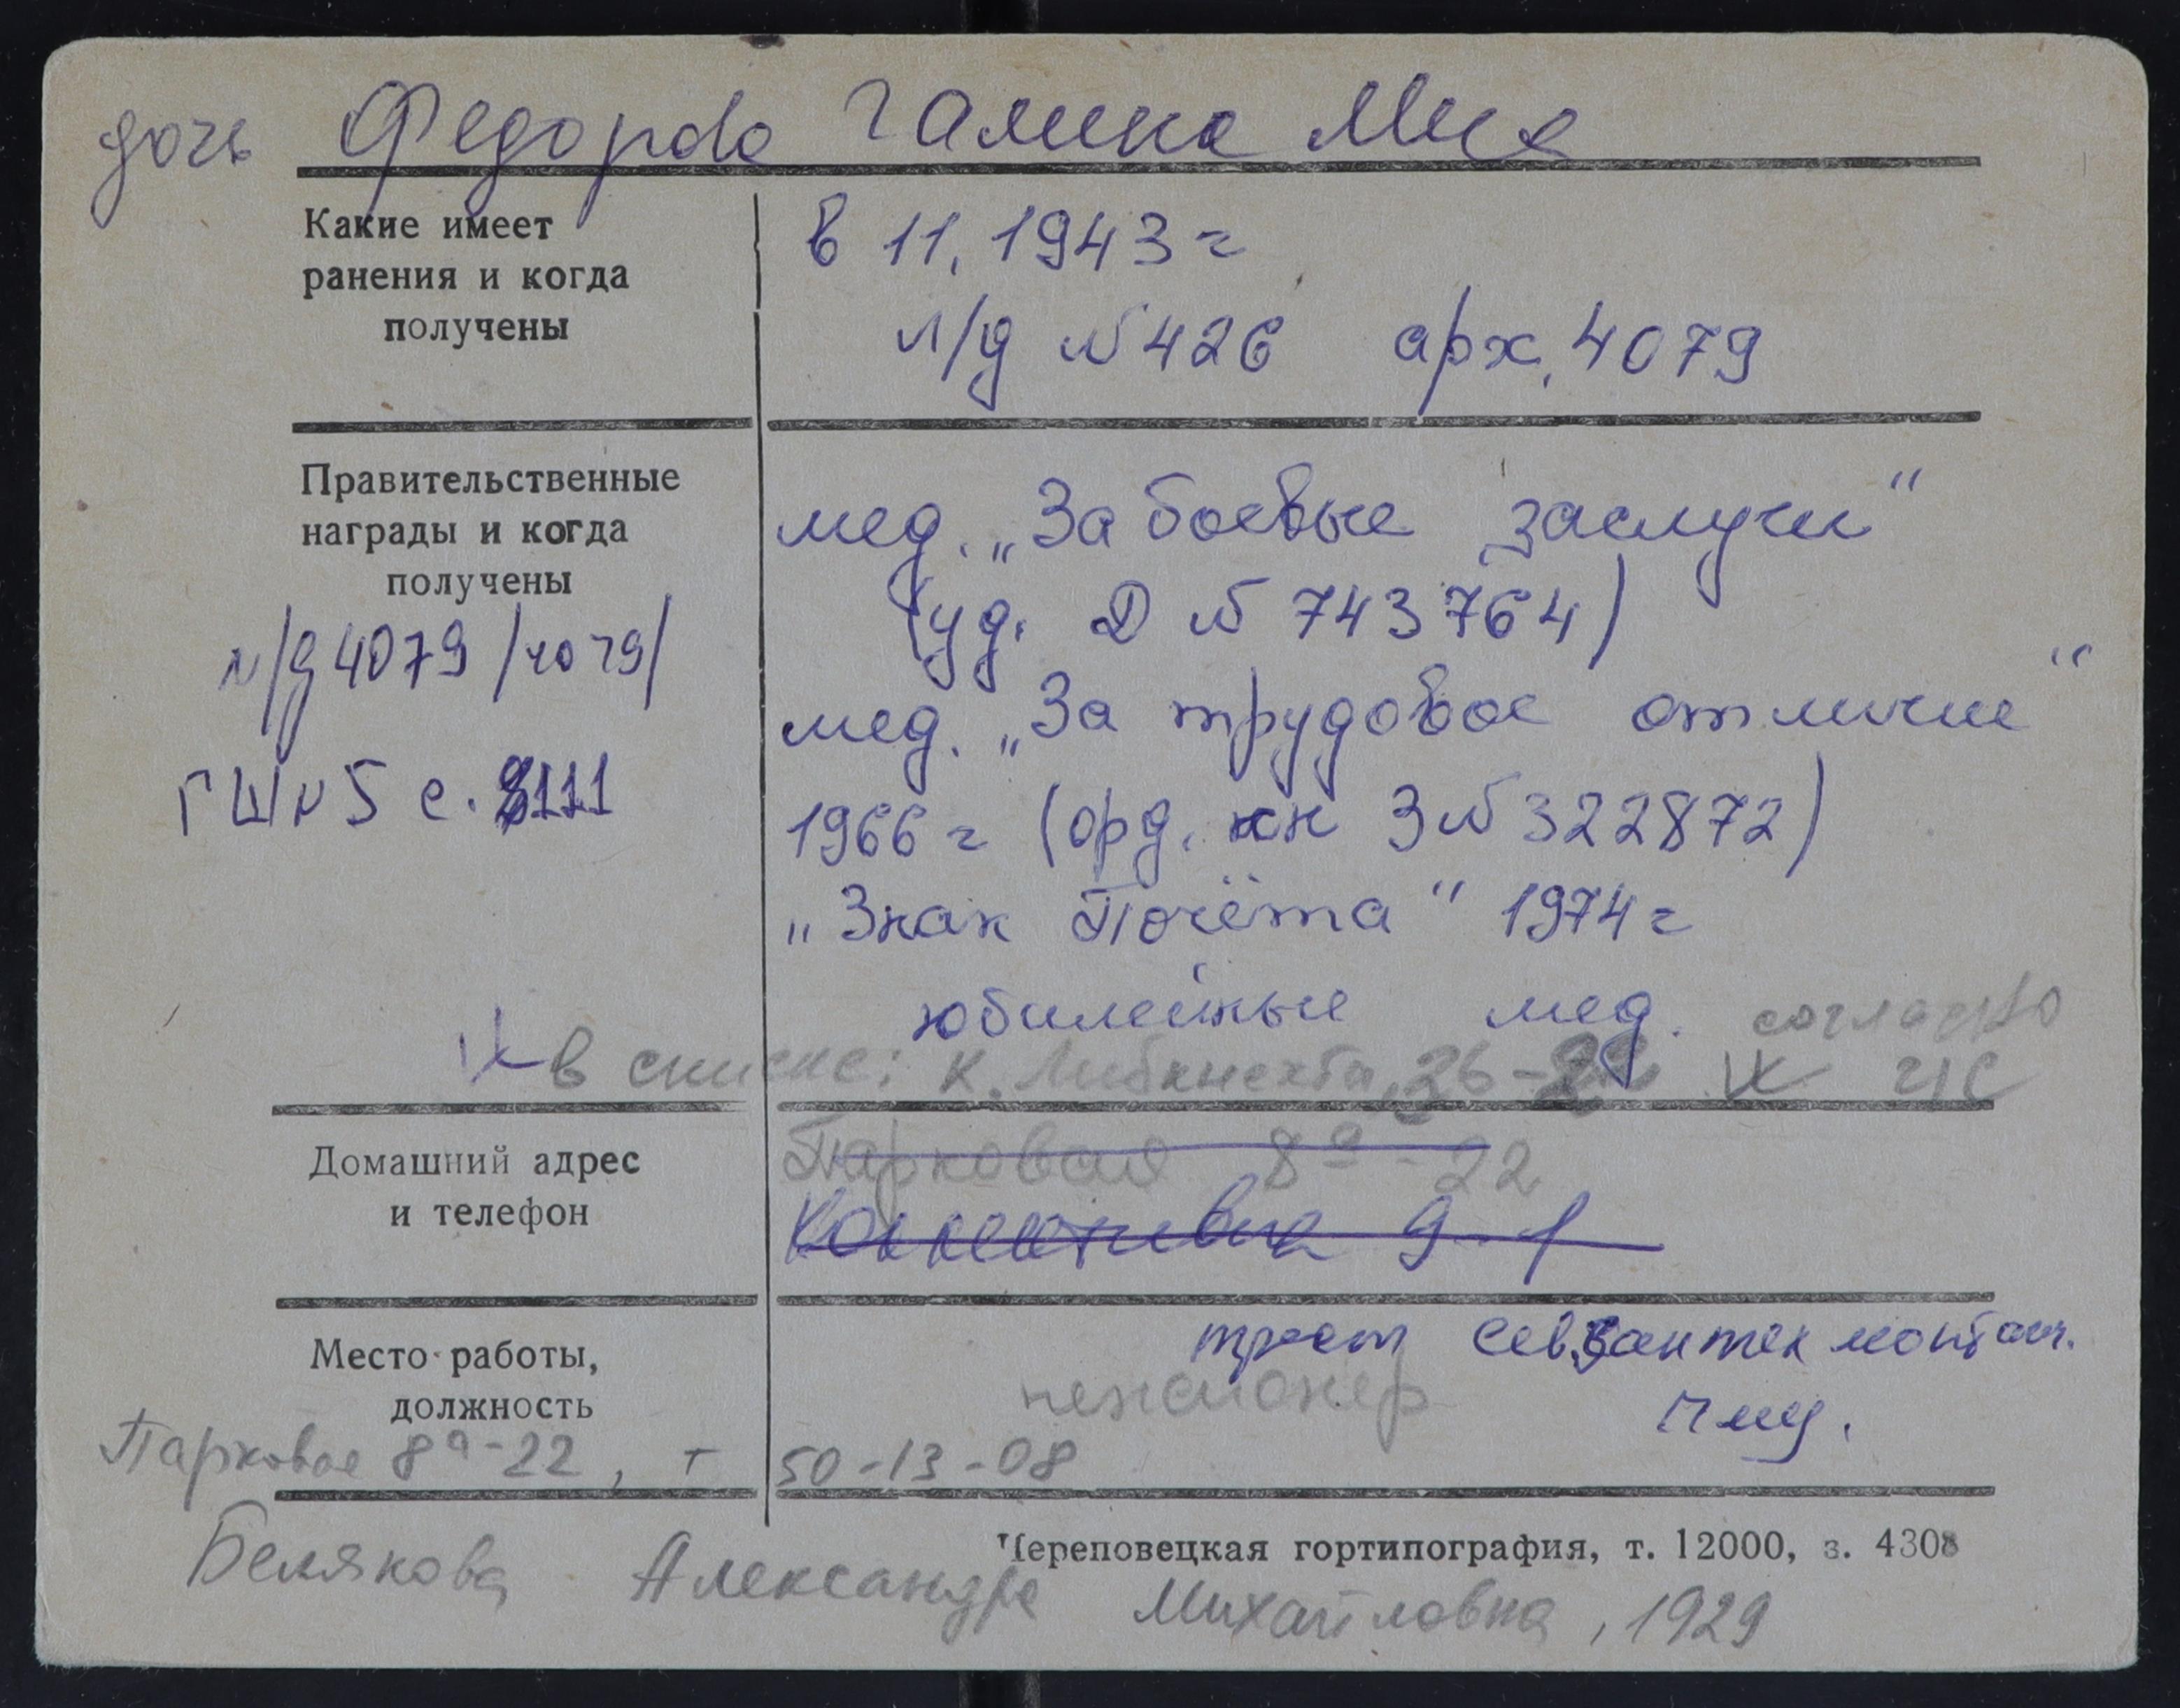 дочь Федорова Галина Мих
Какие имеет
ранения и когда
получены
в 11.1943 г
л/д №426 арх. 4079
Правительственные
награды и когда
получены
мед. „За боевые заслуги“
(уд. Д № 743764)
мед. „За трудовое отличие“
1966 г (орд. кн З № 322872)
„Знак Почёта“ 1974 г
юбилейные мед.
л/д 4079 /4079/
ГШ № 5 с. 111
согласно
IX в списке: К. Либкнехта, 36-22 IX ЧС
Домашний адрес
и телефон
Парковая 8а-22
Коллективная 9-1
Место работы,
должность
трест Севзапсантехмонтаж.
пенсионер
Парковая 8а-22, т 50-13-08
Череповецкая гортипография, т. 12000, з. 4308
Белякова Александра Михайловна, 1929